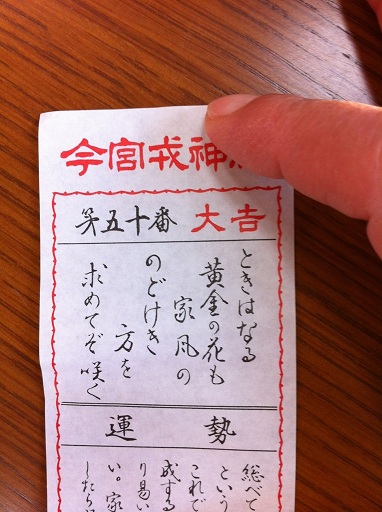 今宮戎神
第五十番 大吉
ときはなる
黄金の花も
家風の
のどけき
方を
求めてぞ咲く
運勢
総べて
という
これで
成する
り易い
い。家
したら